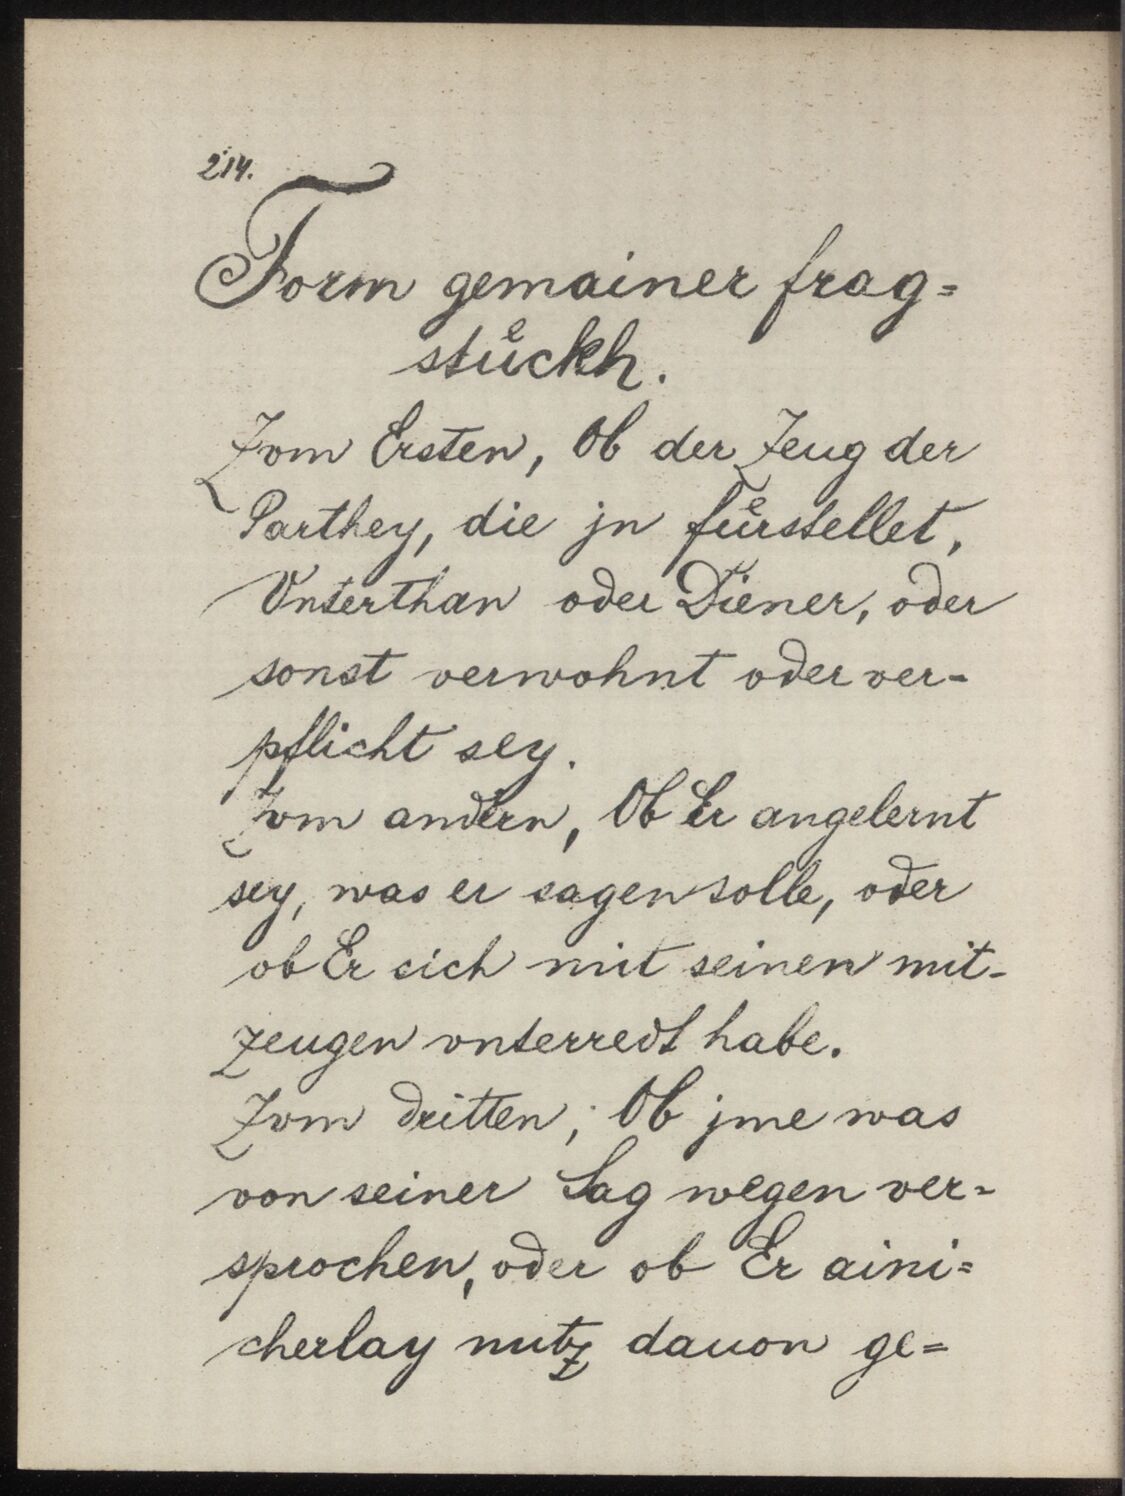 214.
Form gemainer frag=
stuͤckh.
Zvm Ersten, Ob der Zeug der
Parthey, die jn fuͤrstellet,
Vnterthan oder Diener, oder
sonst verwohnt oder ver-
pflicht sey.
Zvm andern, Ob Er angelernt
sey, was er sagen solle, oder
ob Er sich mit seinen mit-
zeugen vnterredt habe.
Zvm dritten; Ob jme was
von seiner Sag wegen ver=
sprochen, oder ob Er aini=
cherlay nutz dauon ge=